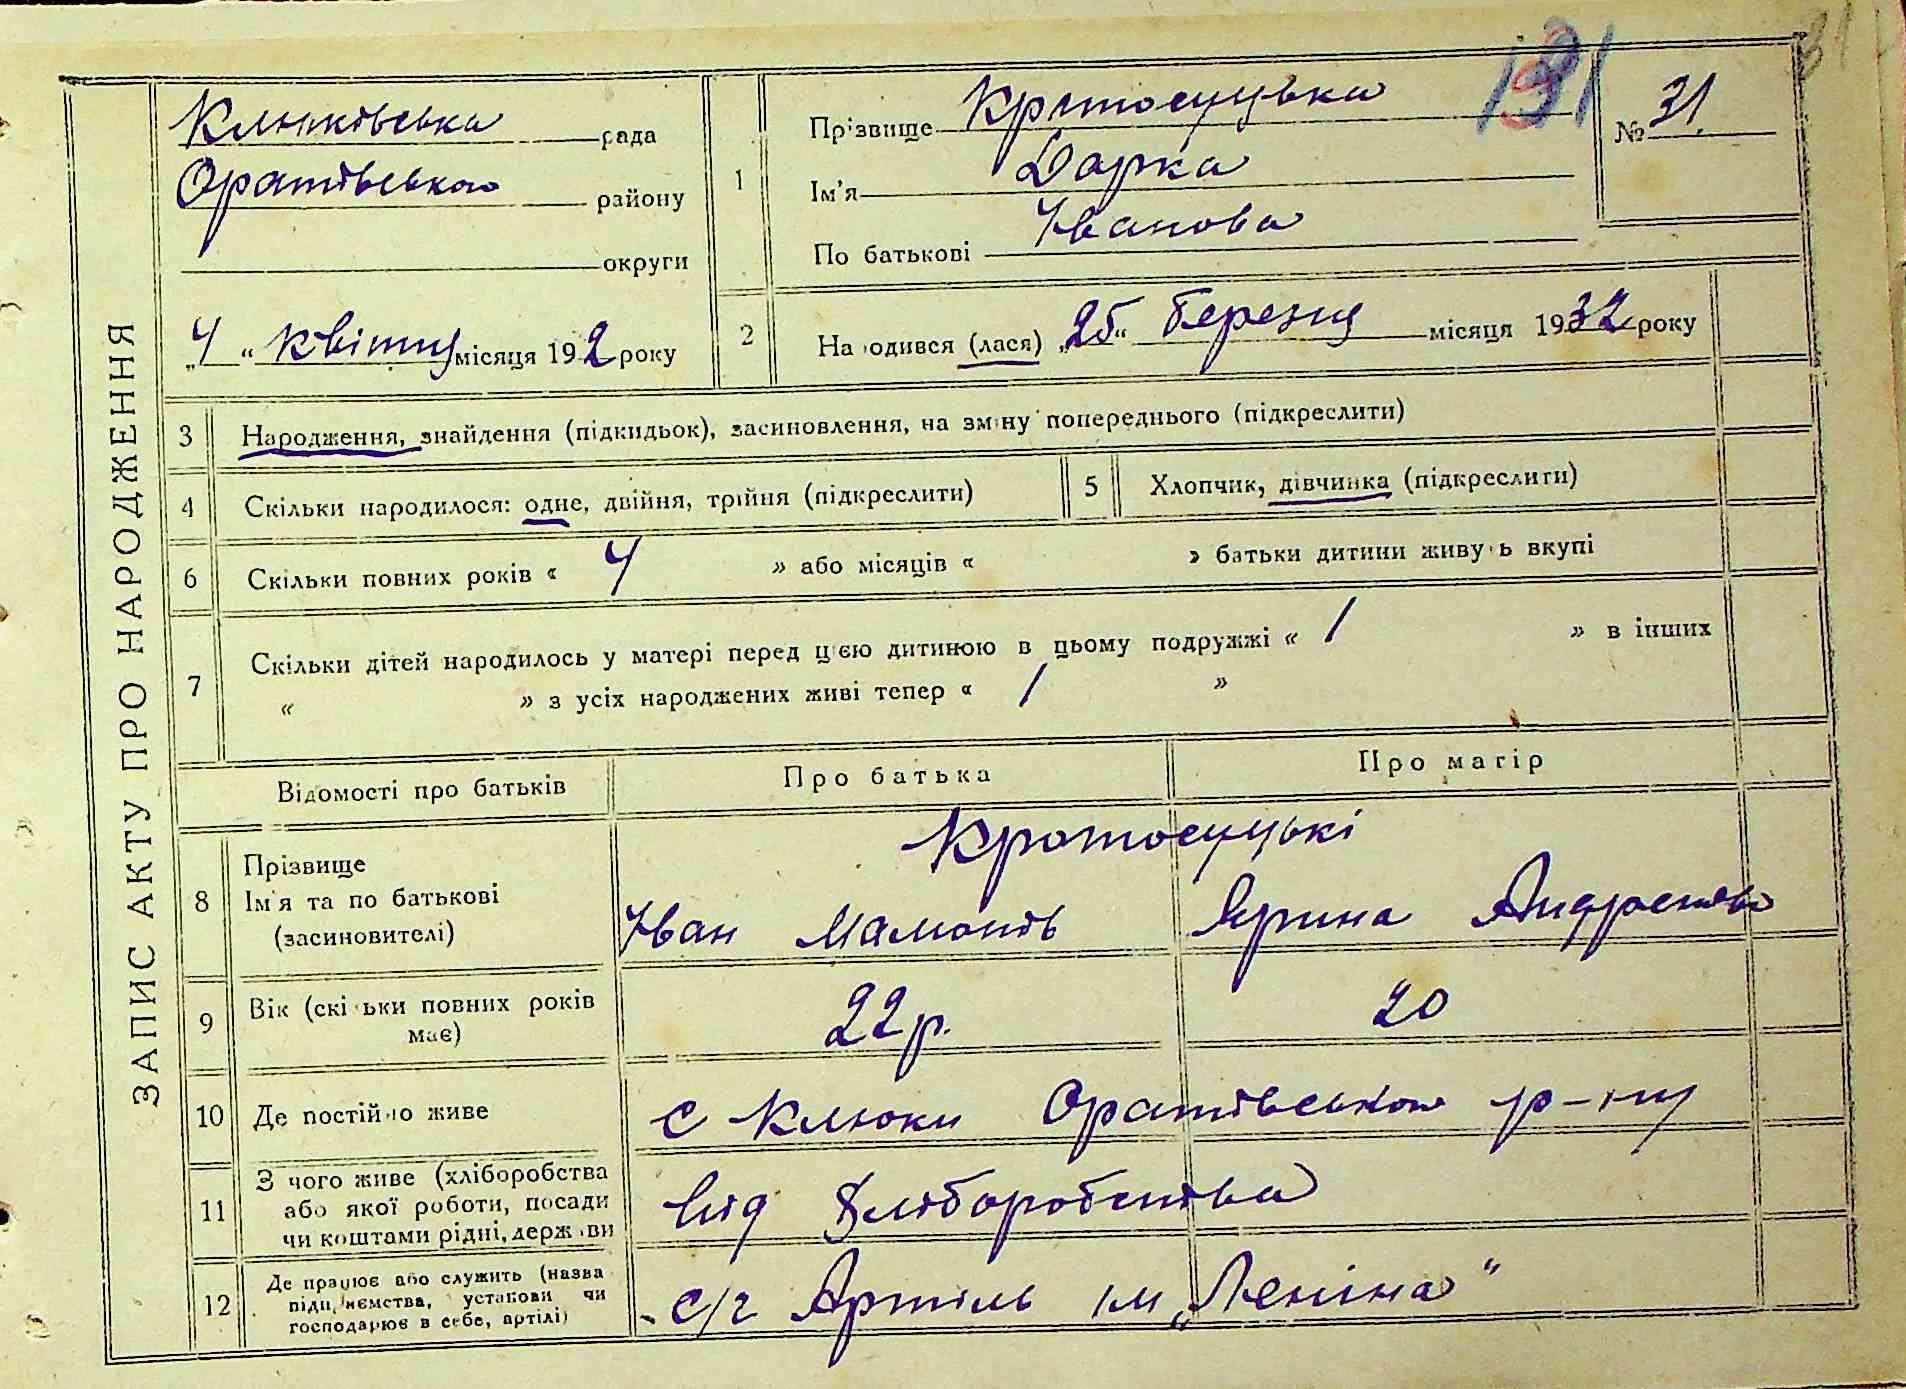 ЗАПИС АКТУ ПРО НАРОДЖЕННЯ
Клюківська рада
Оратівського району
округи
„4“ квітня місяця 192 року
1
Прізвище
Ім'я Дарка
По батькові Іванова
131
№ 31
2
На одився (лася) „25“ березня місяця 1932 року
3 Народження, знайдення (підкидьок), засиновлення, на зміну попереднього (підкреслити)
4 Скільки народилося: одне, двійня, трійня (підкреслити)
5 Хлопчик, дівчинка (підкреслити)
6 Скільки повних років « 4 » або місяців « » батьки дитини живу ь вкупі
7 Скільки дітей народилось у матері перед цією дитиною в цьому подружжі « 1 » в інших
« » з усіх народжених живі тепер « 1 »
Відомості про батьків
Про батька
Про матір
8 Прізвище
Ім'я та по батькові
(засиновителі)
Іван Ярина
9 Вік (скі ьки повних років
має)
22 р. 20
10 Де постійно живе
с Клюки Оратівського р-ну
11 З чого живе (хліборобства
або якої роботи, посади
чи коштами рідні, держ ви
від Хліборобства
12 Де працює або служить (назва
підп иємства, установи чи
господарює в себе, артілі)
с/г Артіль ім „Леніна“